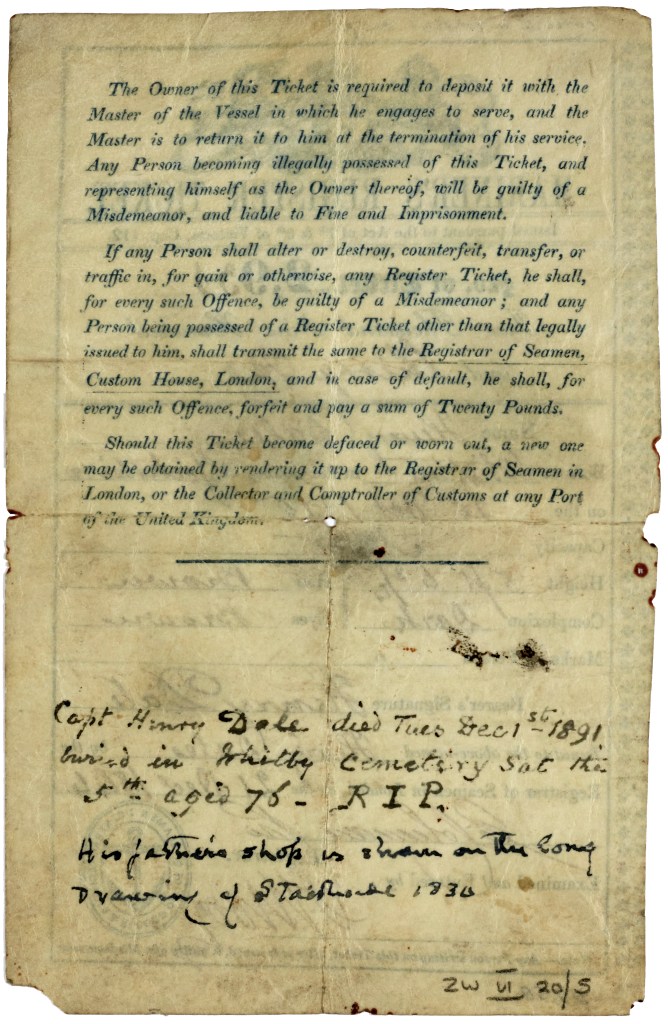 The Owner of this Ticket is required to deposit it with the
Master of the Vessel in which he engages to serve, and the
Master is to return it to him at the termination of his service.
Any Person becoming illegally possessed of this Ticket, and
representing himself as the Owner thereof, will be guilty of a
Misdemeanor, and liable to Fine and Imprisonment.
If any Person shall alter or destroy, counterfeit, transfer, or
traffic in, for gain or otherwise, any Register Ticket, he shall,
for every such Offence, be guilty of a Misdemeanor; and any
Person being possessed of a Register Ticket other than that legally
issued to him, shall transmit the same to the Registrar of Seamen,
Custom House, London, and in case of default, he shall, for
every such Offence, forfeit and pay a sum of Twenty Pounds.
Should this Ticket become defaced or worn out, a new one
may be obtained by rendering it up to the Registrar of Seamen in
London, or the Collector and Comptroller of Customs at any Port
of the United Kingdom.
Capt Henry Dale died Tues Dec 1st 1891
buried in Whitby Cemetery Sat the
5th aged 76 - R I P.
His father's shop is shown on the long
Drawing of 1830
ZW VI 20/5